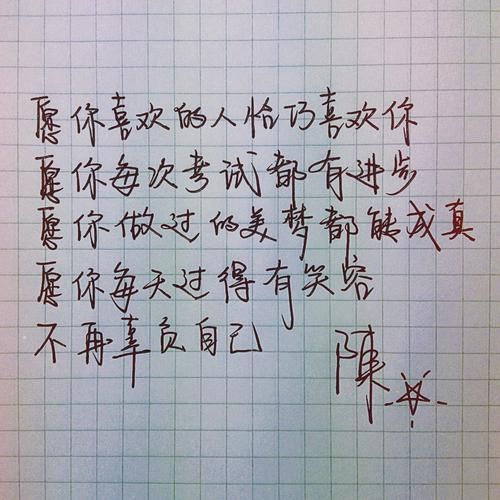 愿你喜欢的人恰巧喜欢你
愿你每次考试都有进步
愿你做过的美梦都能成真
愿你每天过得有笑容
不再辜负自己
陳